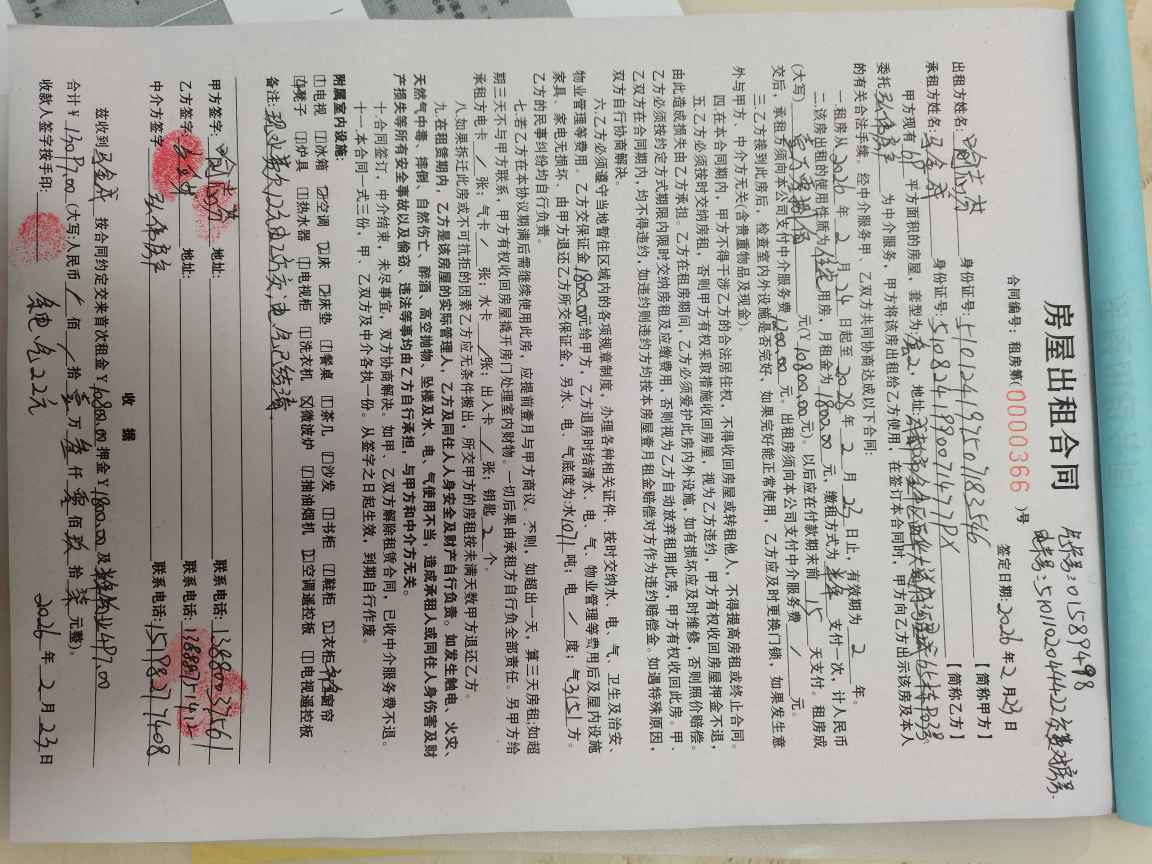 房屋出租合同
合同编号：租房第(0000366)号
签定日期:2026年2月23日
气号:01589498
出租方姓名: 身份证号:510124197507183546【简称甲方】
承租方姓名: 身份证号:【简称乙方】
甲方现有 平方面积的房屋，套型为: 地址:
委托 为中介服务，甲方将该房出租给乙方使用，在签订本合同时，甲方向乙方出示该房及本人
的有关合法手续。经中介服务甲、乙双方共同协商达成以下合同:
一.租房从2026年2月24日起至2028年2月23日止，有效期为2年。
二.该房出租的使用性质为住宅用房，月租金为1800.00元，缴租方式为半年支付一次，计人民币
(大写) 元(￥10800.00元)。以后应在付款期来前15天支付。租房成
交后，承租方须向本公司支付中介服务费1200.00元，出租房须向本公司支付中介服务费/元。
三.乙方接到此房后，检查室内外设施是否完好，如果完好能正常使用，乙方应及时更换门锁，如果发生意
外与甲方、中介方无关(含贵重物品及现金)。
四.在本合同期内，甲方不得干涉乙方的合法居住权，不得收回房屋或转租他人，不得提高房租或终止合同。
五.乙方必须按时交纳房租，否则甲方有权采取措施收回房屋，视为乙方违约，甲方有权收回房屋押金不退，
由此造成损失由乙方承担。乙方在租房期间，乙方必须爱护此房内外设施，如有损坏应及时维修，否则照价赔偿。
乙方必须按约定方式期限内限时交纳房租及应缴费用，否则视为乙方自动放弃租用此房，甲方有权收回此房。甲.
乙双方在合同期内，均不得违约，如违约则违约方均按本房屋壹月租金赔偿对方作为违约赔偿金。如遇特殊原因，
双方自行协商解决。
六.乙方必须遵守当地暂住区域内的各项规章制度，办理各种相关证件、按时交纳水、电、气、卫生及治安、
物业管理等费用。乙方交保证金1800.00元给甲方，乙方退房时结清水、电、气、物业管理等费用后及屋内设施
家具、家电无损坏、由甲方退还乙方所交保证金，另水、电、气底度为:水1071吨；电/度；气3151方。
乙方的民事纠纷均自行负责。
七.若乙方在本协议期满后需继续使用此房，应提前壹月与甲方商议。否则，如超出一天，算三天房租:如超
期三天不与甲方联系，甲方有权收回房屋撬开房门处理室内财物。一切后果由承租方自行负全部责任。另甲方给
承租方电卡/张；气卡/张；水卡/张；出入卡/张；钥匙2个。
八.如果拆迁此房或不可抗拒的因素乙方应无条件搬出，所交甲方的房租按未满天数甲方退还乙方。
九.在租赁期内，乙方是该房屋的实际管理人，乙方及同住人人身安全及财产自行负责。如发生触电、火灾、
天然气中毒、摔倒、自然伤亡、醉酒、高空抛物、坠楼及水、电、气使用不当，造成承租人或同住人身伤害及财
产损失等所有安全事故以及偷窃、违法等事均由乙方自行承担，与甲方和中介方无关。
十.合同签订，中介结束，未尽事宜，双方协商解决。如甲、乙双方解除租赁合同，已收中介服务费不退。
十一.本合同一式三份，甲、乙双方及中介各执一份。从签字之日起生效，到期自行作废。
附属室内设施：
电视 冰箱 空调 床 床垫 餐桌 茶几 沙发 书柜 鞋柜 衣柜 窗帘
凳子 炉具 热水器 电视柜 洗衣机 微波炉 抽油烟机 空调遥控板 电视遥控板
备注:
甲方签字: 地址: 联系电话:
乙方签字: 地址: 联系电话:
中介方签字 联系电话:15198217408
收 据
兹收到 按合同约定交来首次租金￥10800.00押金￥1800.00及物业497.00
合计￥13097.00(大写:人民币/佰/拾壹万叁仟零佰玖拾柒元整)。
收款人签字按手印: 2026年2月23日